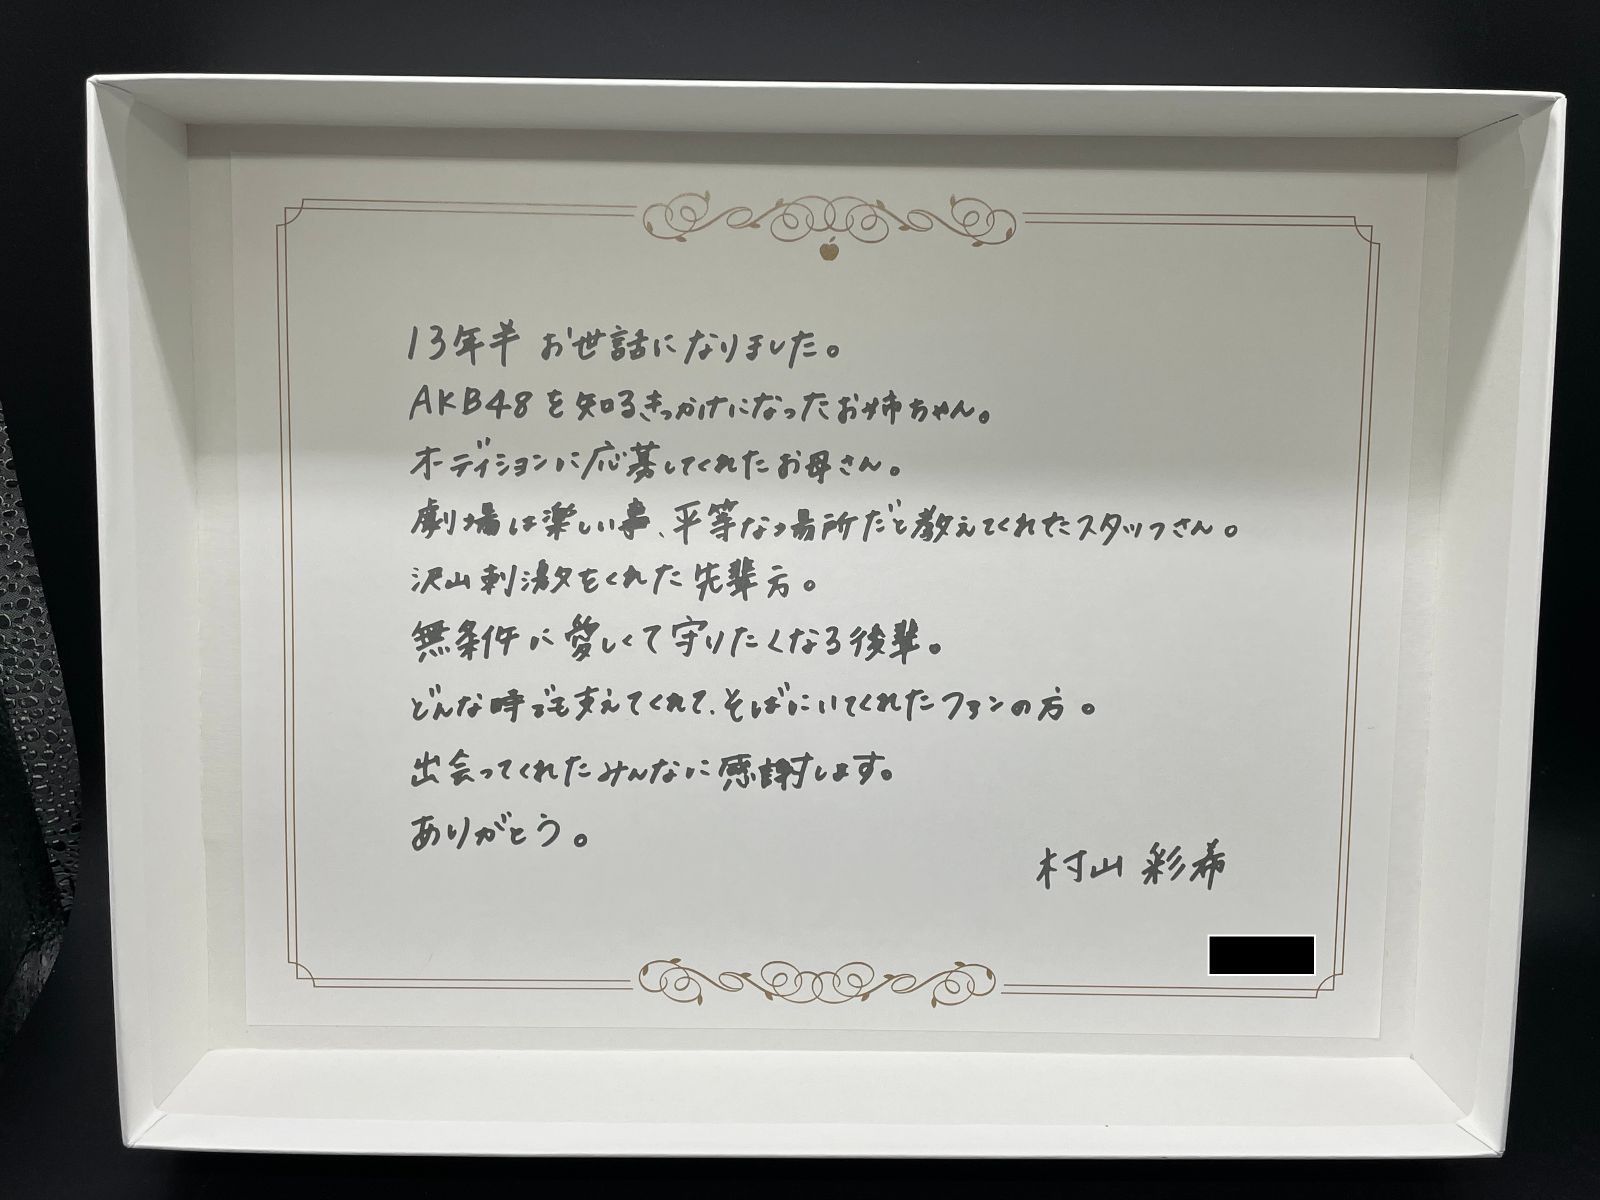 13年半 お世話になりました。
AKB48を知るきっかけになったお姉ちゃん。
オーディションに応募してくれたお母さん。
劇場は楽しい事、平等な場所だと教えてくれたスタッフさん。
沢山刺激をくれた先輩方。
無条件に愛しくて守りたくなる後輩。
どんな時でも支えてくれて、そばにいてくれたファンの方。
出会ってくれたみんなに感謝します。
ありがとう。
村山 彩希